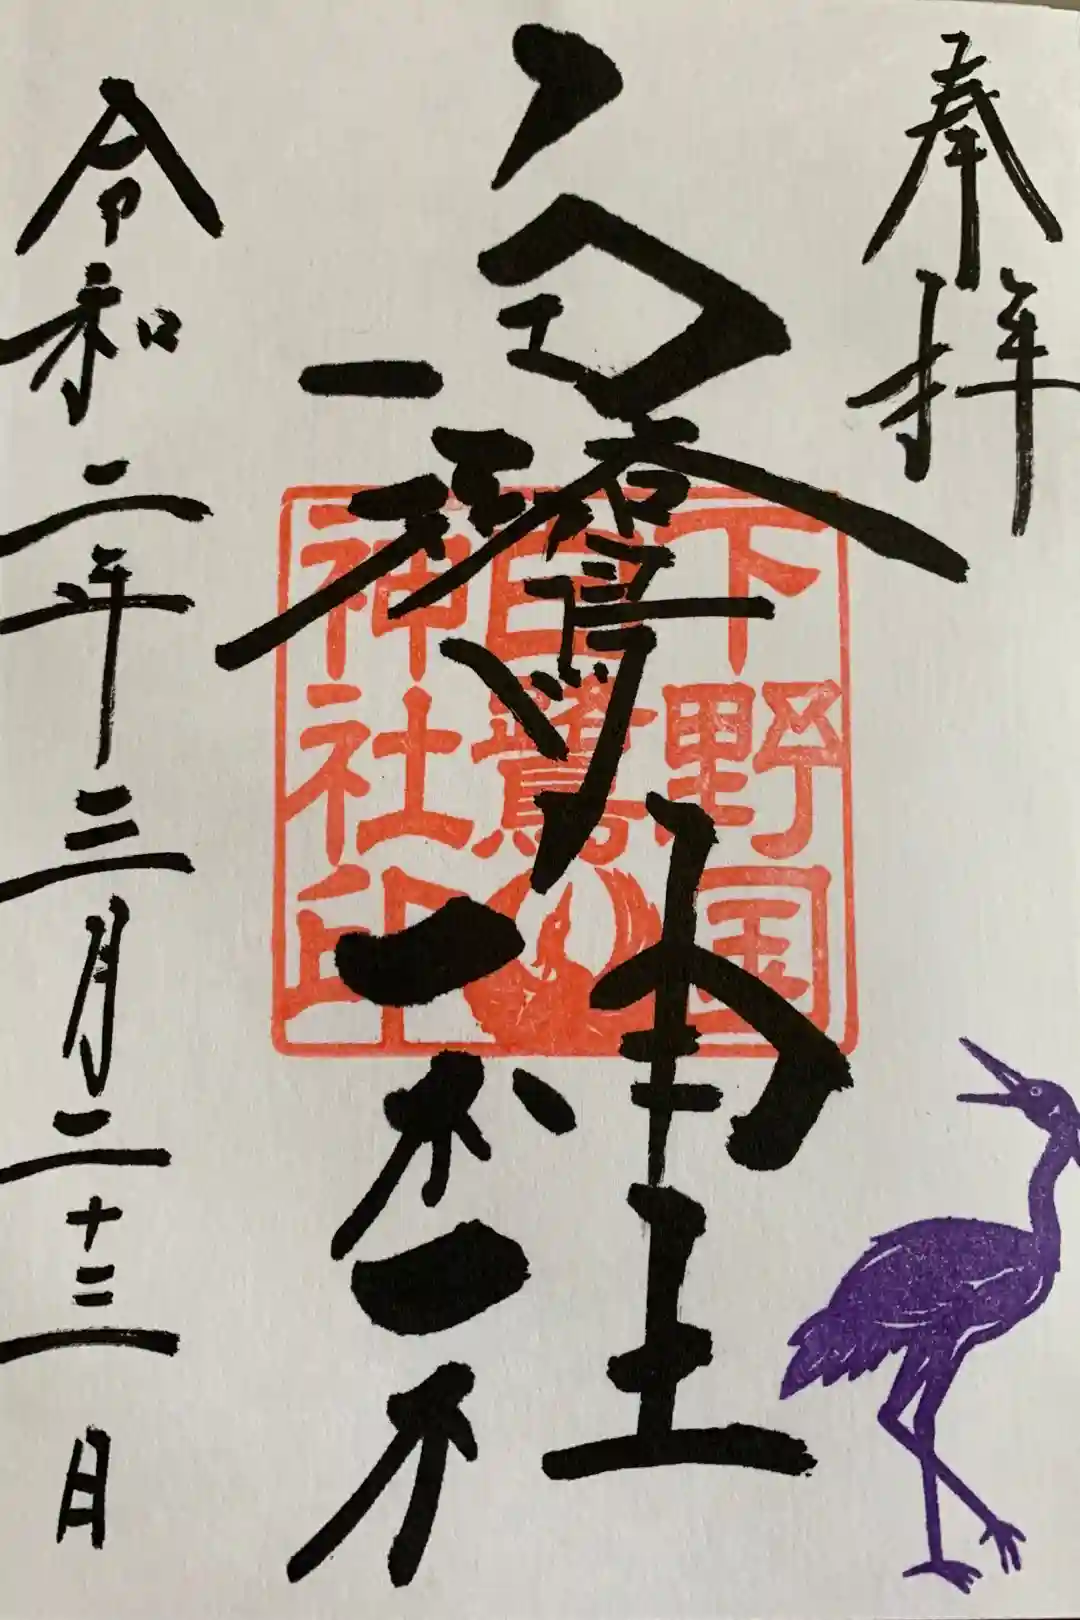 奉拝
白鷺神社
下野国
白鷺
神社印
令和二年三月二十三日